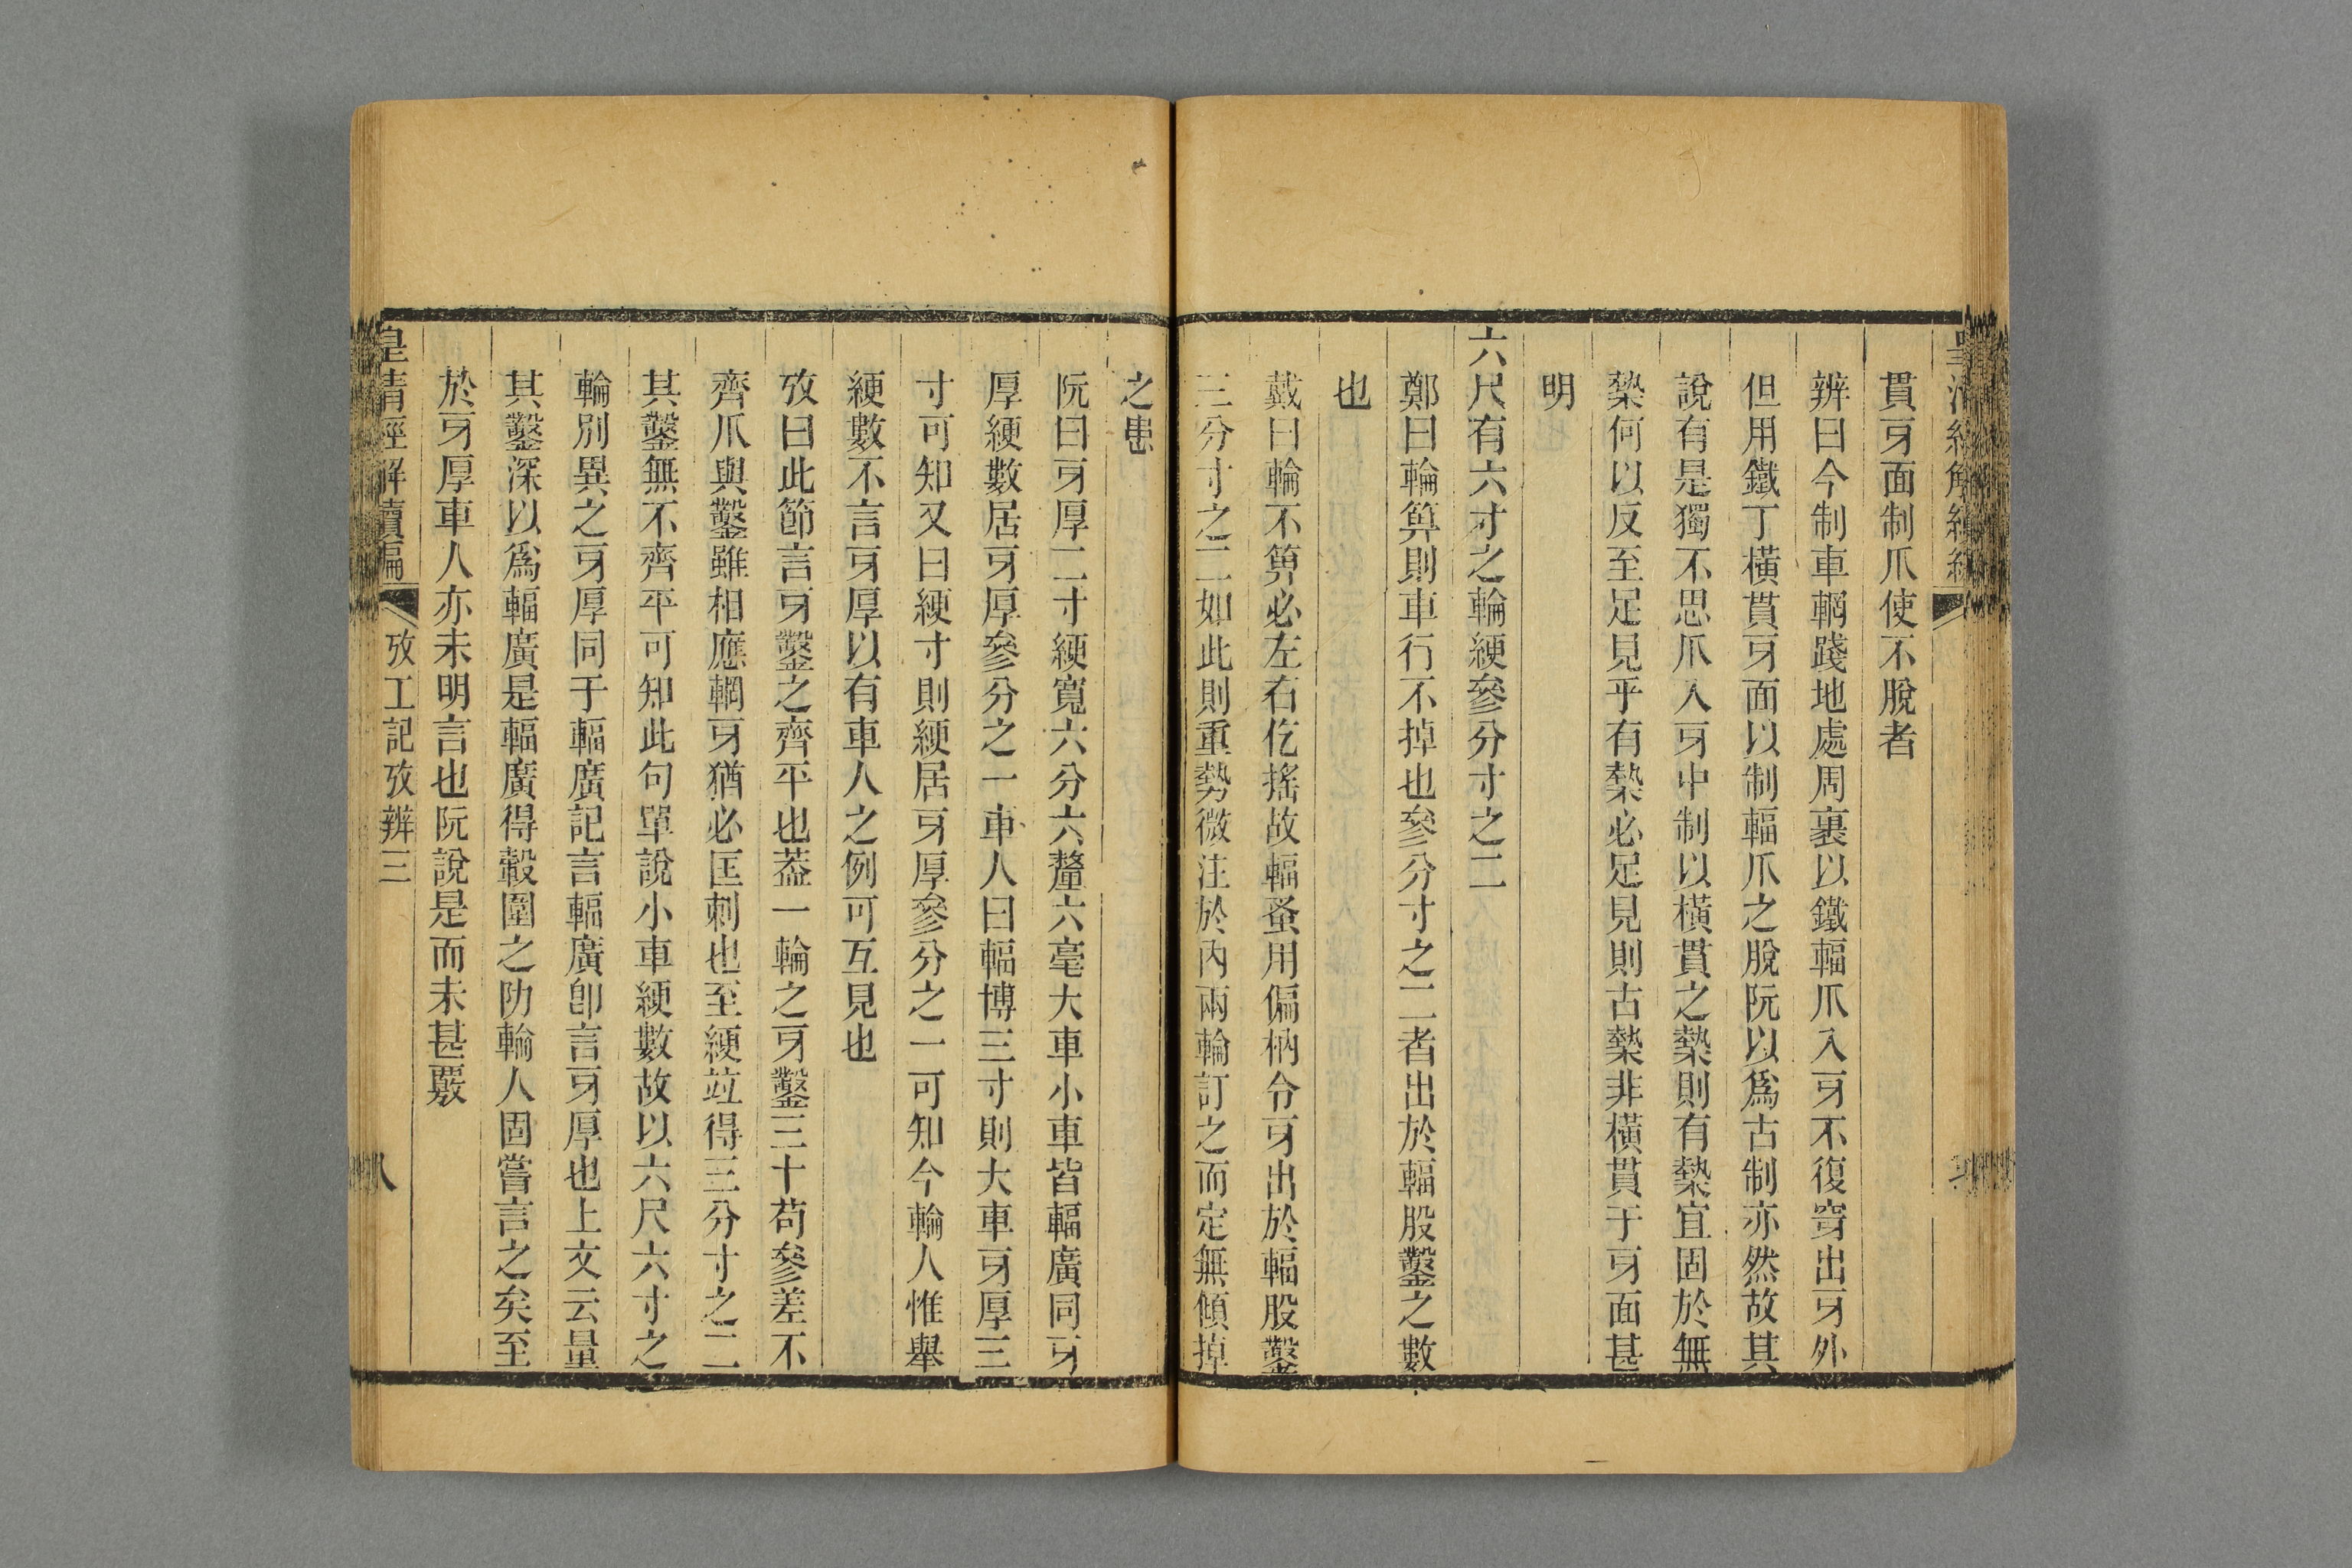 貫牙面制爪使不脫者
辨曰今制車輞踐地處周裹以鐵輻爪入牙不復穿出牙外
但用鐵丁橫貫牙面以制輻爪之脫阮以爲古制亦然故其
說有是獨不思爪入牙中制以橫貫之槷則有槷宜固於無
槷何以反至足見乎有槷必足見則古槷非橫貫于牙面甚
明
六尺有六寸之輪綆參分寸之二
鄭曰輪箅則車行不掉也參分寸之二者出於輻股鑿之數
也
戴曰輪不箅必左右仡搖故輻蚤用偏枘令牙出於輻股鑿
三分寸之二如此則重勢微注於內兩輪訂之而定無傾掉
之患
阮曰牙厚二寸綆寬六分六釐六毫大車小車皆輻廣同牙
厚綆數居牙厚參分之一車人曰輻博三寸則大車牙厚三
寸可知又曰綆寸則綆居牙厚參分之一可知今輪人惟舉
綆數不言牙厚以有車人之例可互見也
攷曰此節言牙鑿之齊平也葢一輪之牙鑿三十苟參差不
齊爪與鑿雖相應輞牙猶必匡刺也至綆竝得三分寸之二
其鑿無不齊平可知此句單說小車綆數故以六尺六寸之
輪別異之牙厚同于輻廣記言輻廣卽言牙厚也上文云量
其鑿深以爲輻廣是輻廣得轂圍之阞輪人固嘗言之矣至
於牙厚車人亦未明言也阮說是而未甚覈
皇清經解續編 攷工記攷辨三 八